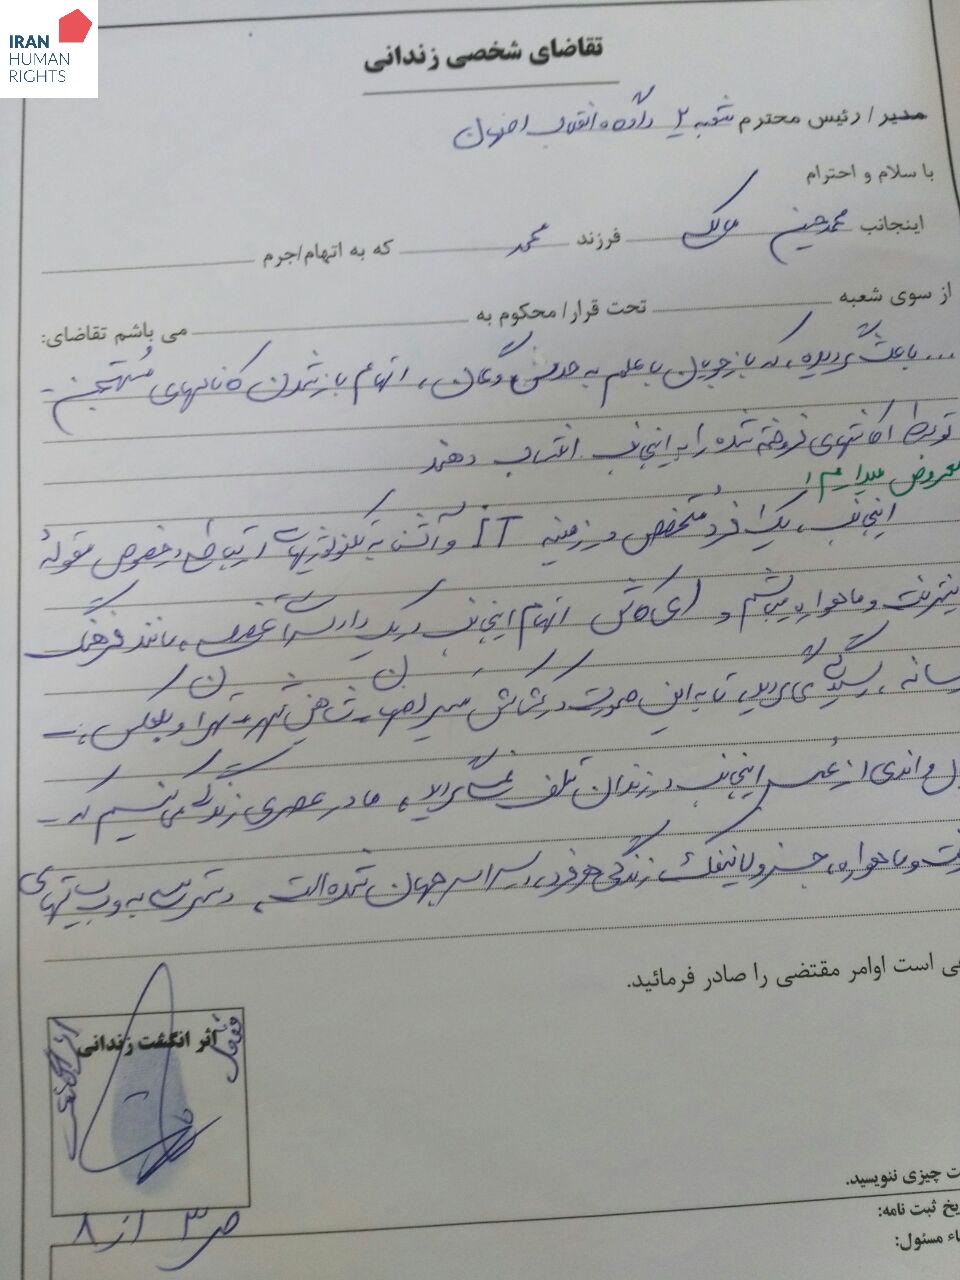 IRAN
HUMAN
RIGHTS
تقاضای شخصی زندانی
مدیر / رئیس محترم شعبه ۲ دادگاه انقلاب اصفهان
با سلام و احترام
اینجانب محمدحسین مالک فرزند محمد که به اتهام/جرم
از سوی شعبه تحت قرار/ محکوم به می باشم تقاضای:
... باعث گردیده، که بازجویان با علم به حدس و گمان، اتهام باز شدن کانالهای مُستهجن
توسط اکانتهای فروخته شده را به اینجانب انتساب دهند
معروض میدارم،
اینجانب، یک فرد متخصص در زمینه IT و آشنا به تکنولوژیهای ارتباطی در خصوص مقولهٔ
اینترنت و ماهواره میباشم و ای کاش اتهام اینجانب در یک دادسرای تخصصی، مانند فرهنگ
رسانه، رسیدگی می گردید، تا به این صورت در کشاکش مسیر اصفهان تهران و بلعکس،
و اندی از عمر اینجانب در زندان تلف نمی گردید، ما در عصری زندگی می کنیم که
و ماهواره، جزو لاینفک زندگی هر فرد، در سراسر جهان شده است، دسترسی به وب سایتهای
است اوامر مقتضی را صادر فرمائید.
اثر انگشت زندانی
چیزی ننویسید.
ثبت نامه:
مسئول:
ص ۳ از ۸